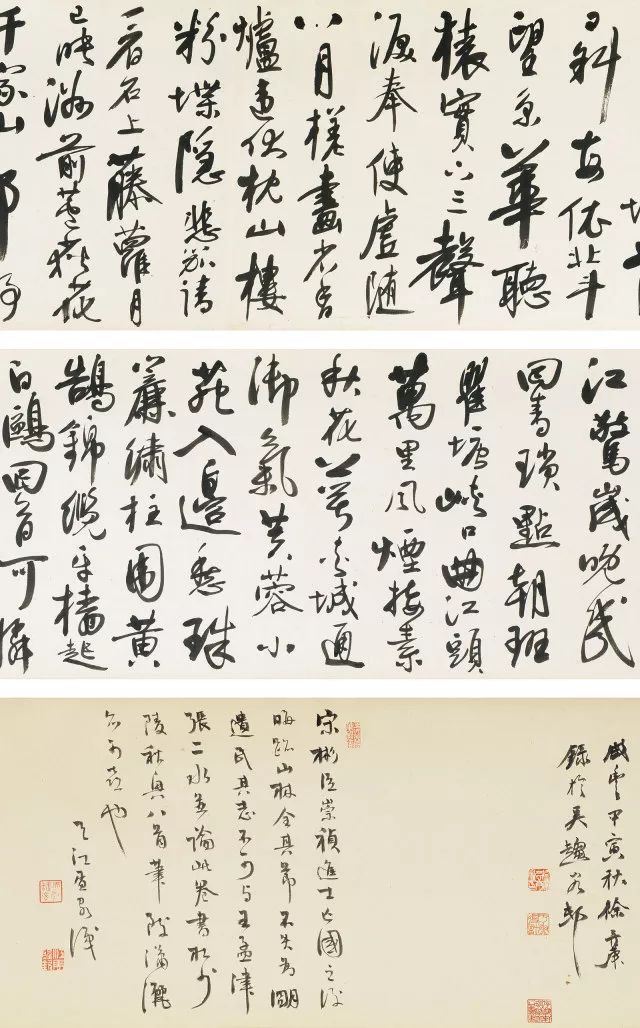 日斜每依北斗
望京華聽
猿實下三聲
淚奉使虛隨
八月槎畫省香
爐違伏枕山樓
粉堞隱悲笳請
看石上藤蘿月
已映洲前蘆荻花
千家山郭靜
江驚歲晚幾
回青瑣點朝班
瞿塘峽口曲江頭
萬里風煙接素
秋花萼夾城通
御氣芙蓉小
苑入邊愁珠
簾繡柱圍黃
鵠錦纜牙檣起
白鷗回首可憐
甲寅秋徐康
錄於吳趨客邸
宋彬臣崇禎進士亡國之後
晦跡山林全其節不失為明
遺民其志不可與王孟津
張二水並論此卷書杜少
陵秋興八首筆致瀟灑
亦可喜也
江識